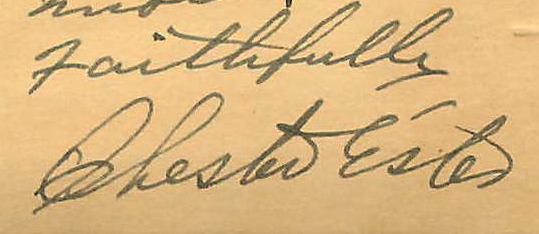 Faithfully
Chester Estes